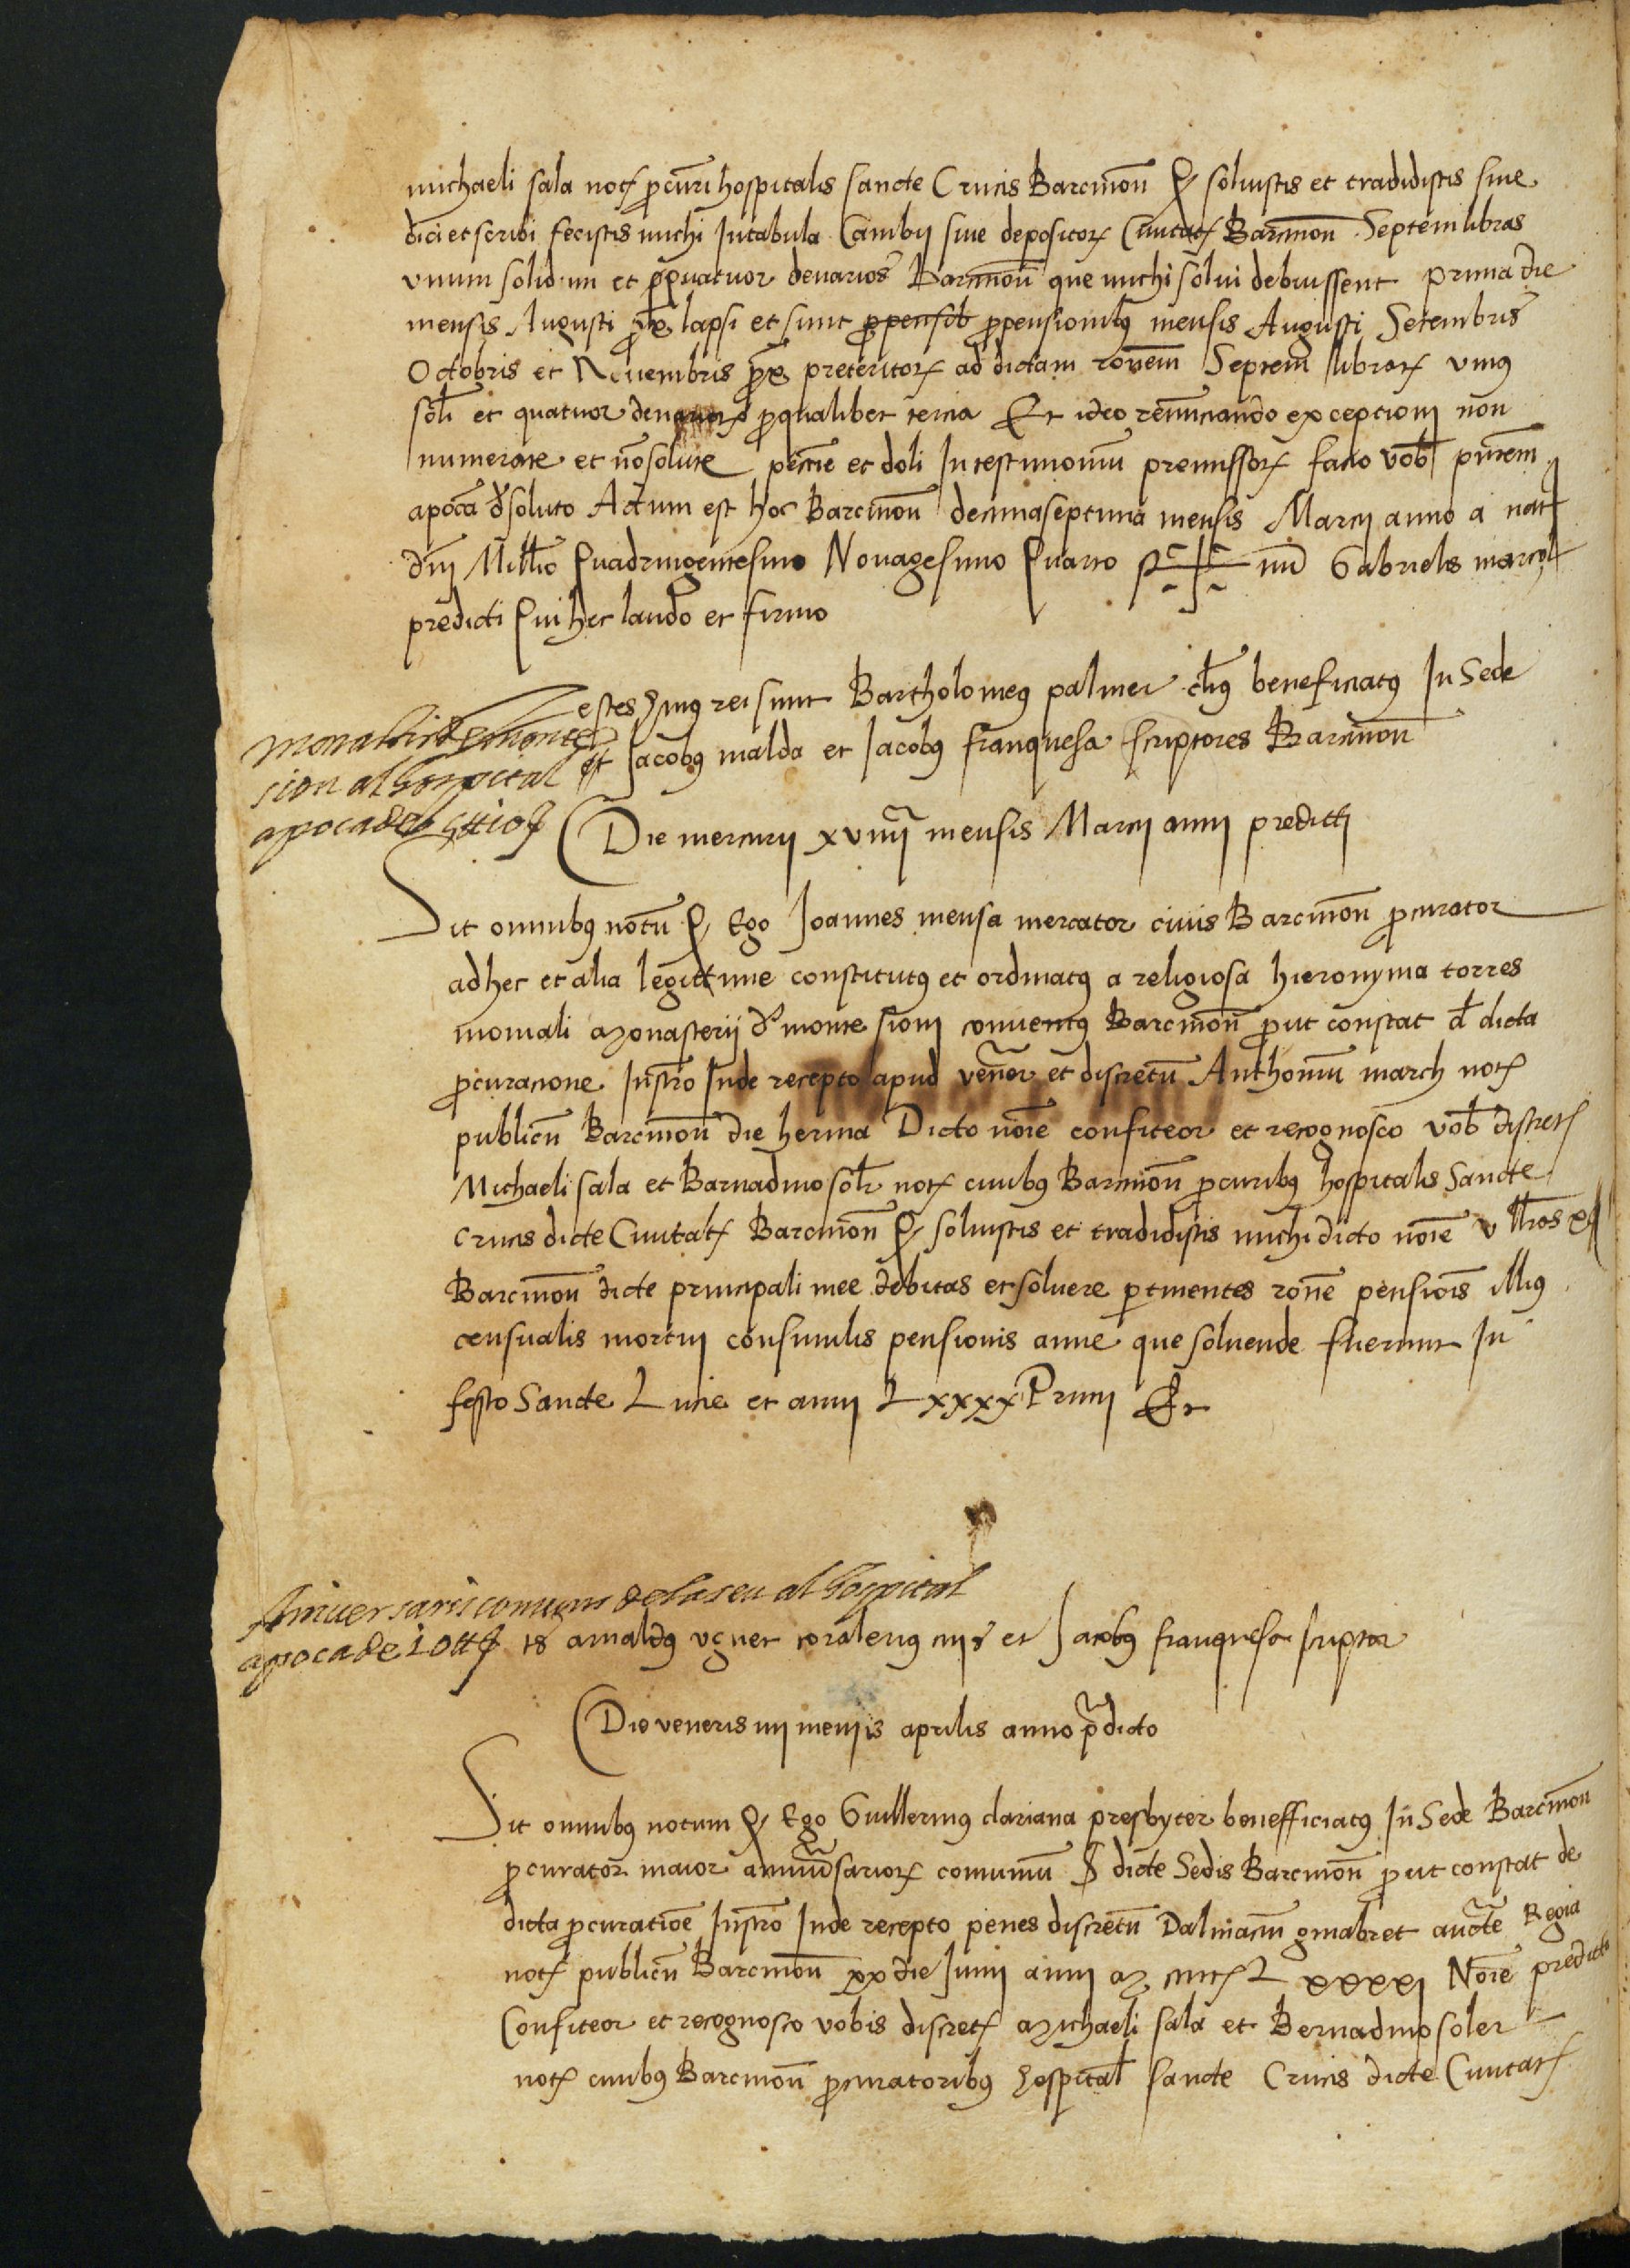 michaeli sala notͬ p̱curi hospitalis sancte Crucis Barcinoñ q̱ soluistis et tradidistis siue
dici et scribi fecistis michi In tabula Cambij siue depositorꝝ Ciuitatͬ Barcinoñ Septem libras
vnum solidum et quatuor denarios Barcinoñ que michi solui debuissent prima die
mensis Augusti lapsi et sunt p̱ pensib p̱ pensionibꝰ mensis Augusti Setembris
Octobris et Nouembris preteritorꝝ ad dictam ronem Septem librarꝝ vniꝰ
sol̃i et quatuor denariorꝝ p̱ qualibet tercia Et ideo renunciando exceptioni non
numerate et nõ solute pecũie et doli In testimoniũ premissorꝝ facio vob̃ pñtem
apocã soluto Actum est hoc Barcinoñ decimaseptima mensis Marcij anno a natͬ
dnĩ Mill̃io Quadringentesimo Nonagesimo Quarto nũ Gabrielis
predicti Qui hec laudo et firmo
estes huiꝰ rei sunt Bartholomeꝰ palmer cl̃iꝰ beneficiatꝰ In Sede
et Jacobꝰ malda et Jacobꝰ franquesa scriptores Barcinoñ
sion al hospital
apoca de
Die mercurij xviiij mensis Marcij anni predicti
Sit omnibꝰ notũ q̱ Ego Joannes mensa mercator ciuis Barcinoñ p̱curator
ad hec et alia legittime constitutꝰ et ordinatꝰ a religiosa hieronyma torres
moniali monasterij de monte sion conuentus Barcinoñ p̱ut constat de dicta
p̱curacione Instr̃o Inde recepto apud veñer et discretũ Anthoniũ march notͬ
publicũ Barcinoñ die herina Dicto noĩe confiteor et recognosco vob̃ discretͬ
Michaeli sala et Barnadino sol̃r notͬ ciuibꝰ Barcinoñ p̱curibꝰ hospitalis Sancte
crucis dicte Ciuitatͬ Barcinoñ q̱ soluistis et tradidistis michi dicto noĩe
Barcinoñ dicte principali mee debitas et soluere p̱tinentes roñe pensiõis illiꝰ
censualis mortui consimilis pensionis anne que soluende fuerunt In
festo Sancte Lucie et anni Lxxxx Primi Et
Aniuersaris comuns de la seu al hospital
apoca de 10 ts arnaldꝰ vguet coralerius et Jacobꝰ franquesa scriptor
Die veneris iiij mensis aprilis anno p̃dicto
Sit omnibꝰ notum q̱ Ego Guillermꝰ clariana presbyter benefficiatꝰ In Sede Barcinoñ
p̱curator maior anniuersariorꝝ comuniũ dicte Sedis Barcinoñ p̱ut constat de
dicta p̱curatiõe Instr̃o Inde recepto penes discretũ Dalmaciũ ginabret auct̃e Regia
notͬ publicũ Barcinoñ xx die Junij anni Lxxxxi Noĩe predicto
Confiteor et recognosco vobis discretͬ michaeli sala et Bernadino soler
notͬ ciuibꝰ Barcinoñ p̱curatoribꝰ hospital̃ sancte Crucis dicte Ciuitatͬ